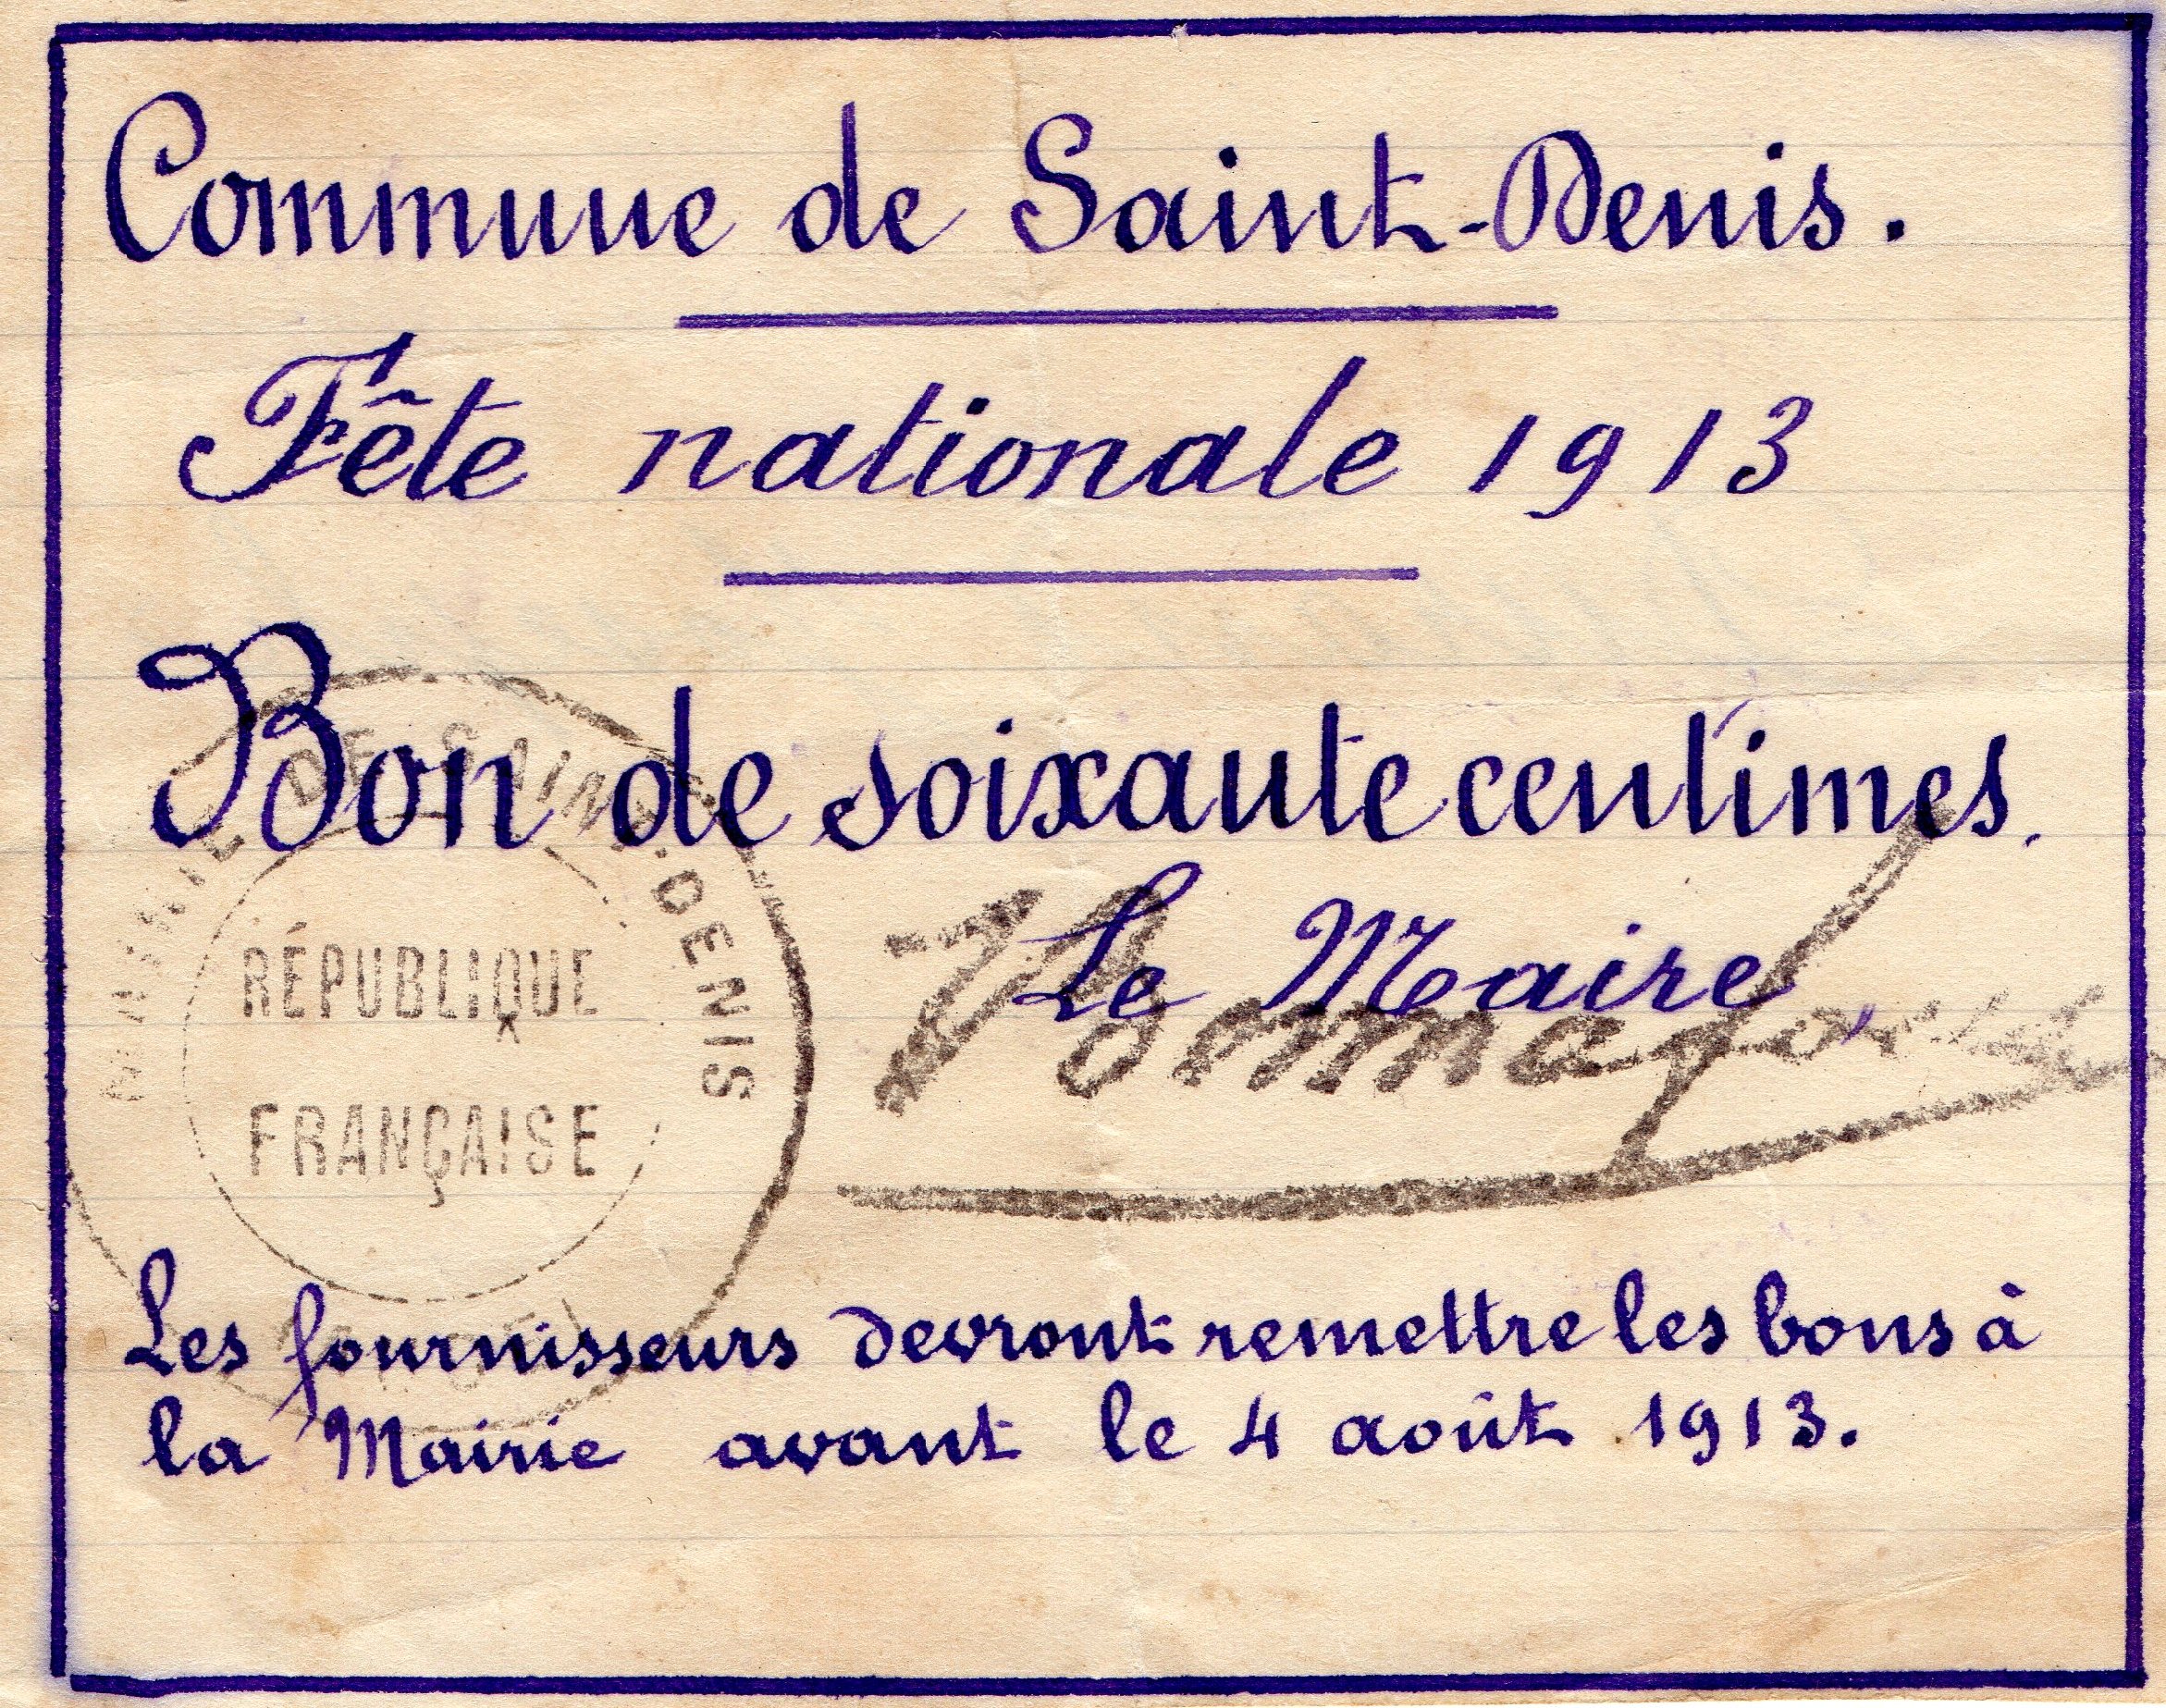 Commune de Saint-Denis.
Fête nationale 1913
Bon de soixante centimes.
Le Maire,
MAIRIE DE SAINT-DENIS
RÉPUBLIQUE
FRANÇAISE
Les fournisseurs devront remettre les bons à
la Mairie avant le 4 août 1913.